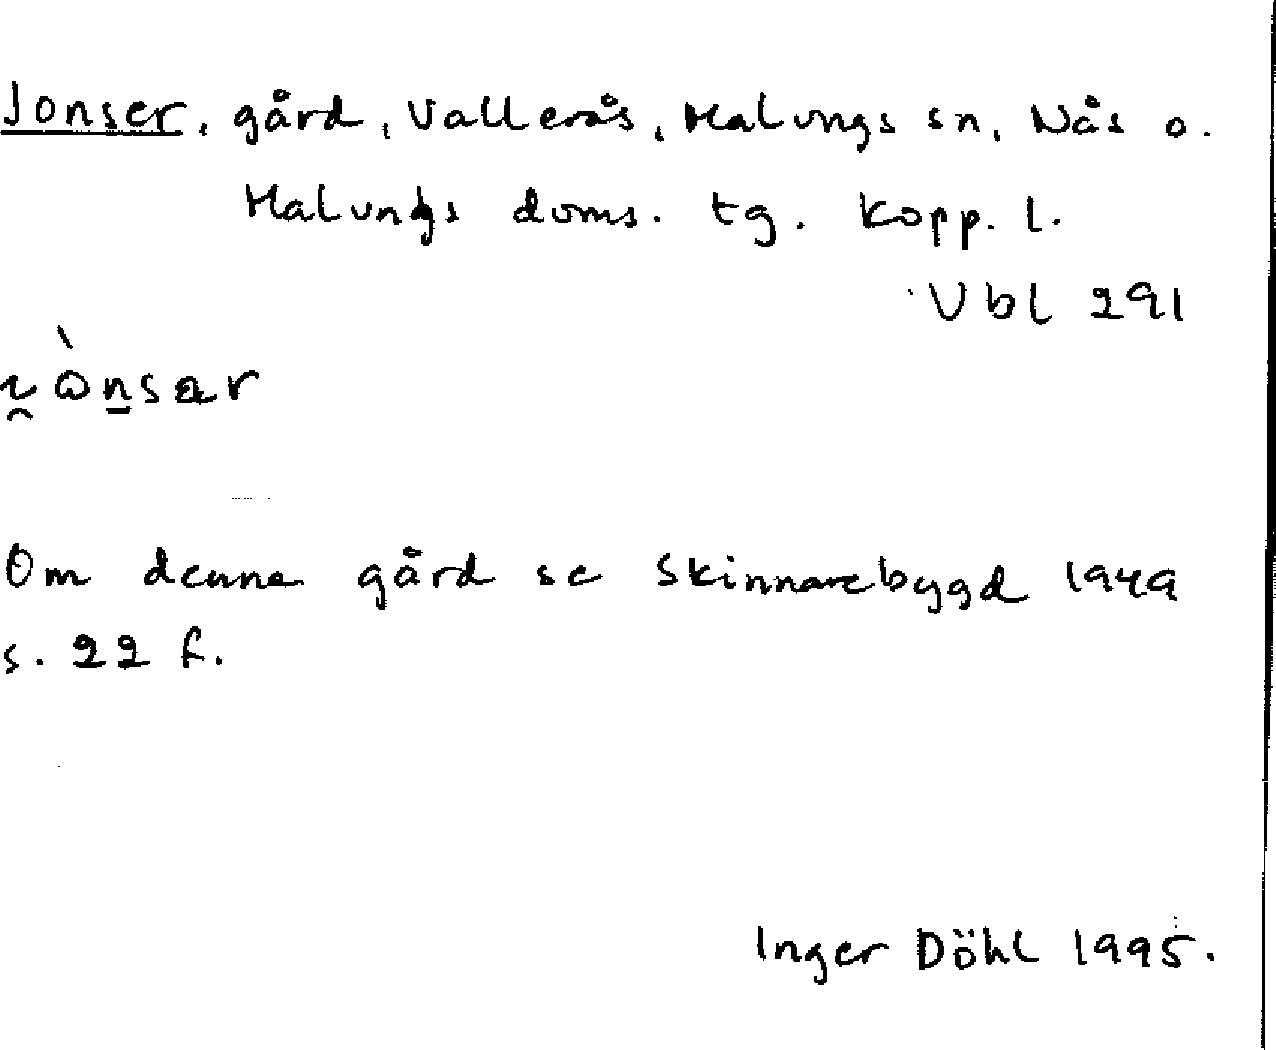 Jonser, gård, Vallerås, Malungs sn, Nås o.
Malungs doms. tg. Kopp. l.
Vbl 291
Om denna gård se Skinnarebygd 1949
s. 22 f.
Inger Döhl 1995.